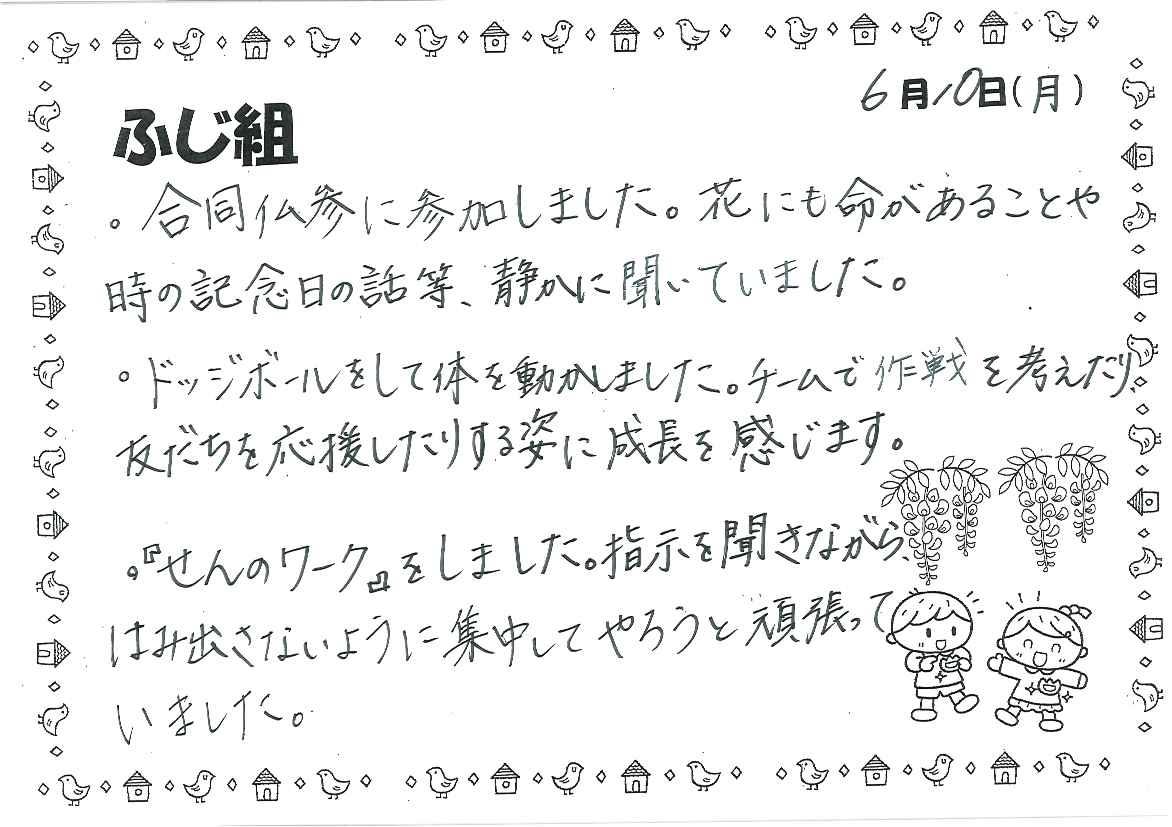 6月10日(月)
ふじ組
。合同仏参に参加しました。花にも命があることや
時の記念日の話等、静かに聞いていました。
。ドッジボールをして体を動かしました。チームで作戦を考えたり、
友だちを応援したりする姿に成長を感じます。
。『せんのワーク』をしました。指示を聞きながら、
はみ出さないように集中してやろうと頑張って
いました。